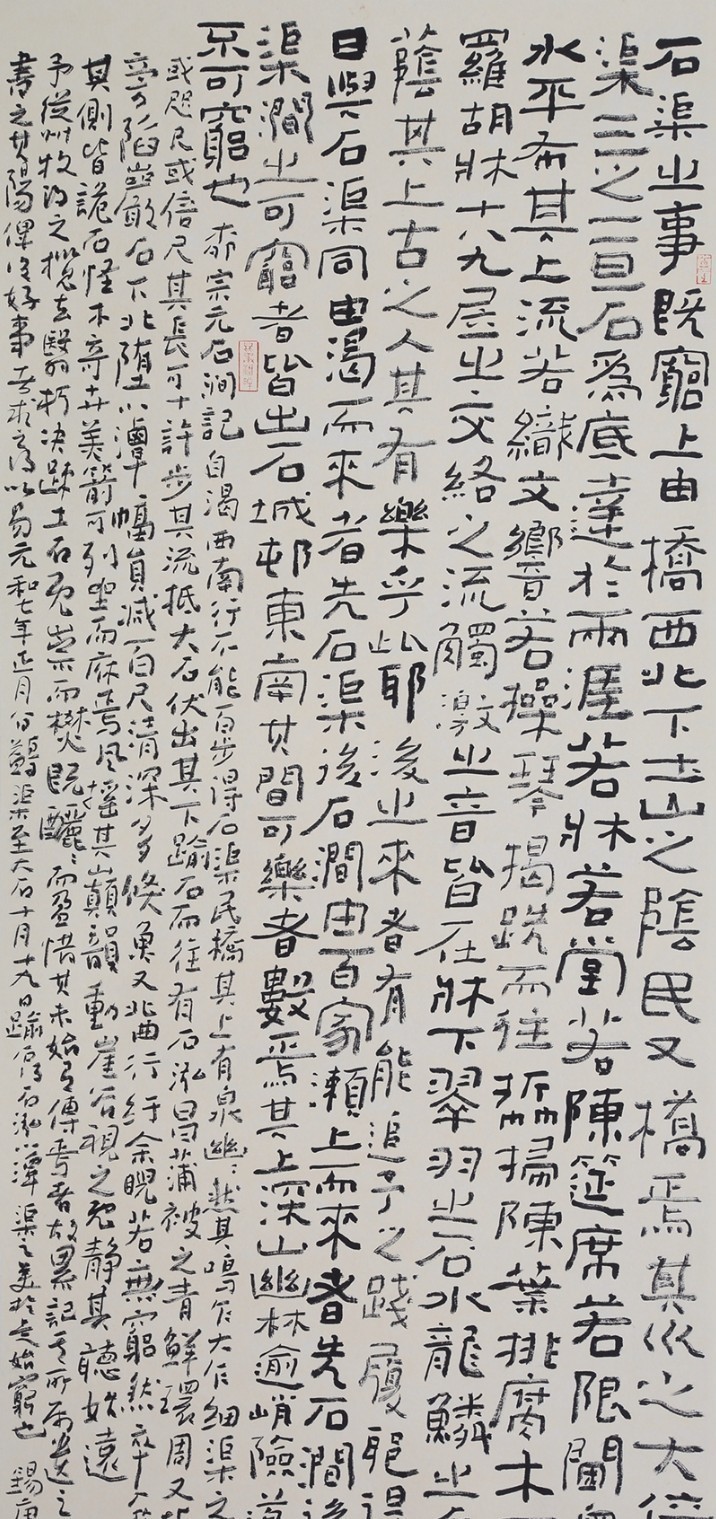 石渠之事既窮上由橋西北下土山之陰民又橋焉其水之大倍
渠三之一亘石為底達於兩涯若牀若堂若陳筵席若限閫
水平布其上流若織文響若操琴揭跣而往折掃陳葉排腐木
羅胡牀十八九居之交絡之流觸激之音皆在牀下翠羽之石水龍鱗之
蔭其上古之人其有樂乎此耶後之來者有能追予之踐履耶得
日與石渠同由渴而來者先石渠後石澗由百家瀨上而來者先石澗後
渠澗之可窮者皆出石城邨東南其間可樂者數焉其上深山幽林逾峭險道
不可窮也 柳宗元石澗記 自渴西南行不能百步得石渠民橋其上有泉幽幽然其鳴乍大乍細渠之
或咫尺或倍尺其長可十許步其流抵大石伏出其下踰石而往有石泓昌蒲被之青鮮環周又
旁陷巖石下北墮小潭幅員減百尺清深多鯈魚又北曲行紆余睨若無窮然卒入
其側皆詭石怪木奇卉美箭可列坐而庥焉風搖其巔韻動崖谷視之既靜其聽始遠
予從州牧得之攬去翳朽決疎土石既崇而焚既釃而盈惜其未始有傳焉者故累記其所屬遺之
書之其陽俾後好事者求之得以易元和七年正月八日蠲渠至大石十月十九日踰石得石泓小潭渠之美於是始窮也 錫